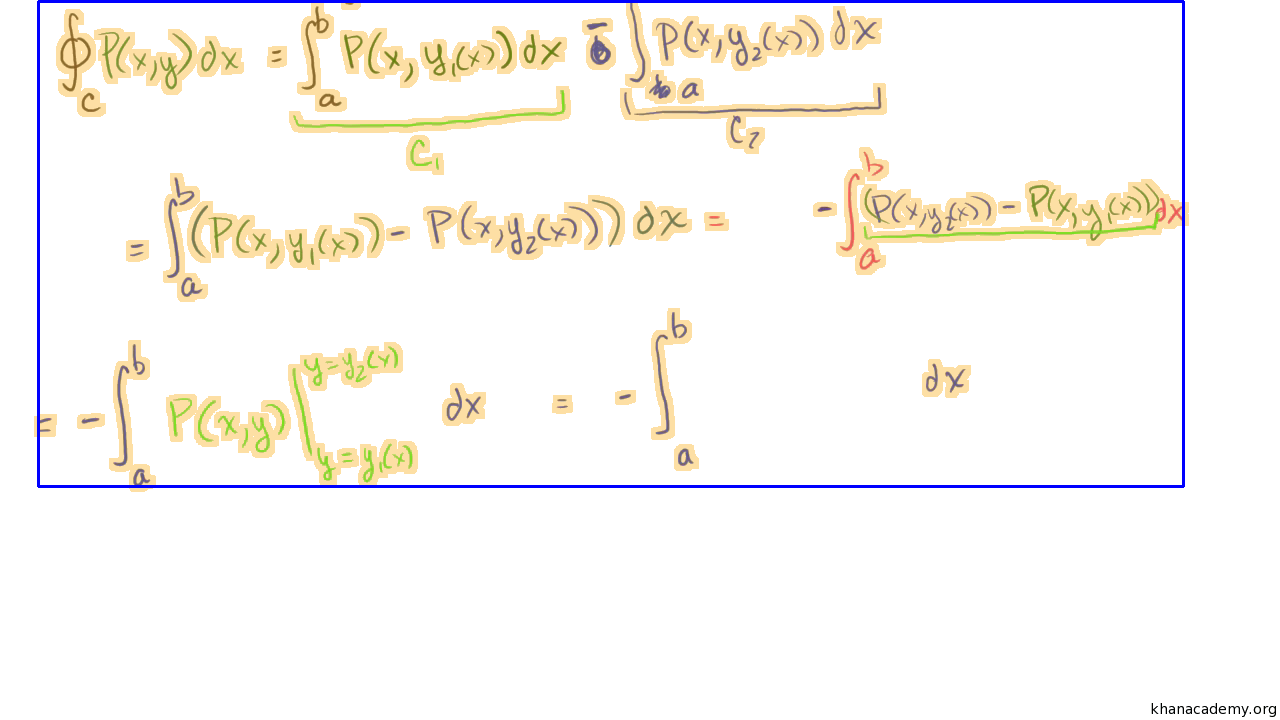 ∮_C P(x,y) dx = ∫_a^b P(x, y₁(x)) dx − ∫_a P(x,y₂(x)) dx
C₁ C₂
= ∫_a^b (P(x, y₁(x)) − P(x,y₂(x))) dx = − ∫_a^b (P(x,y₂(x)) − P(x,y₁(x))) dx
= − ∫_a^b P(x,y) |_{y=y₁(x)}^{y=y₂(x)} dx = − ∫_a^b dx
khanacademy.org